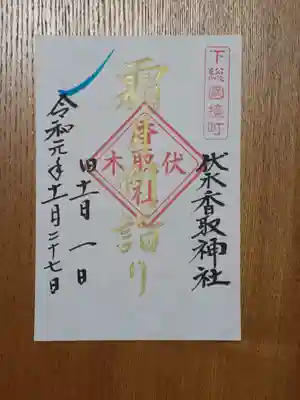 下総国境町
伏木香取神社
霜月朔詣り
伏木
香取社
旧十一月一日
令和元年十一月二十七日